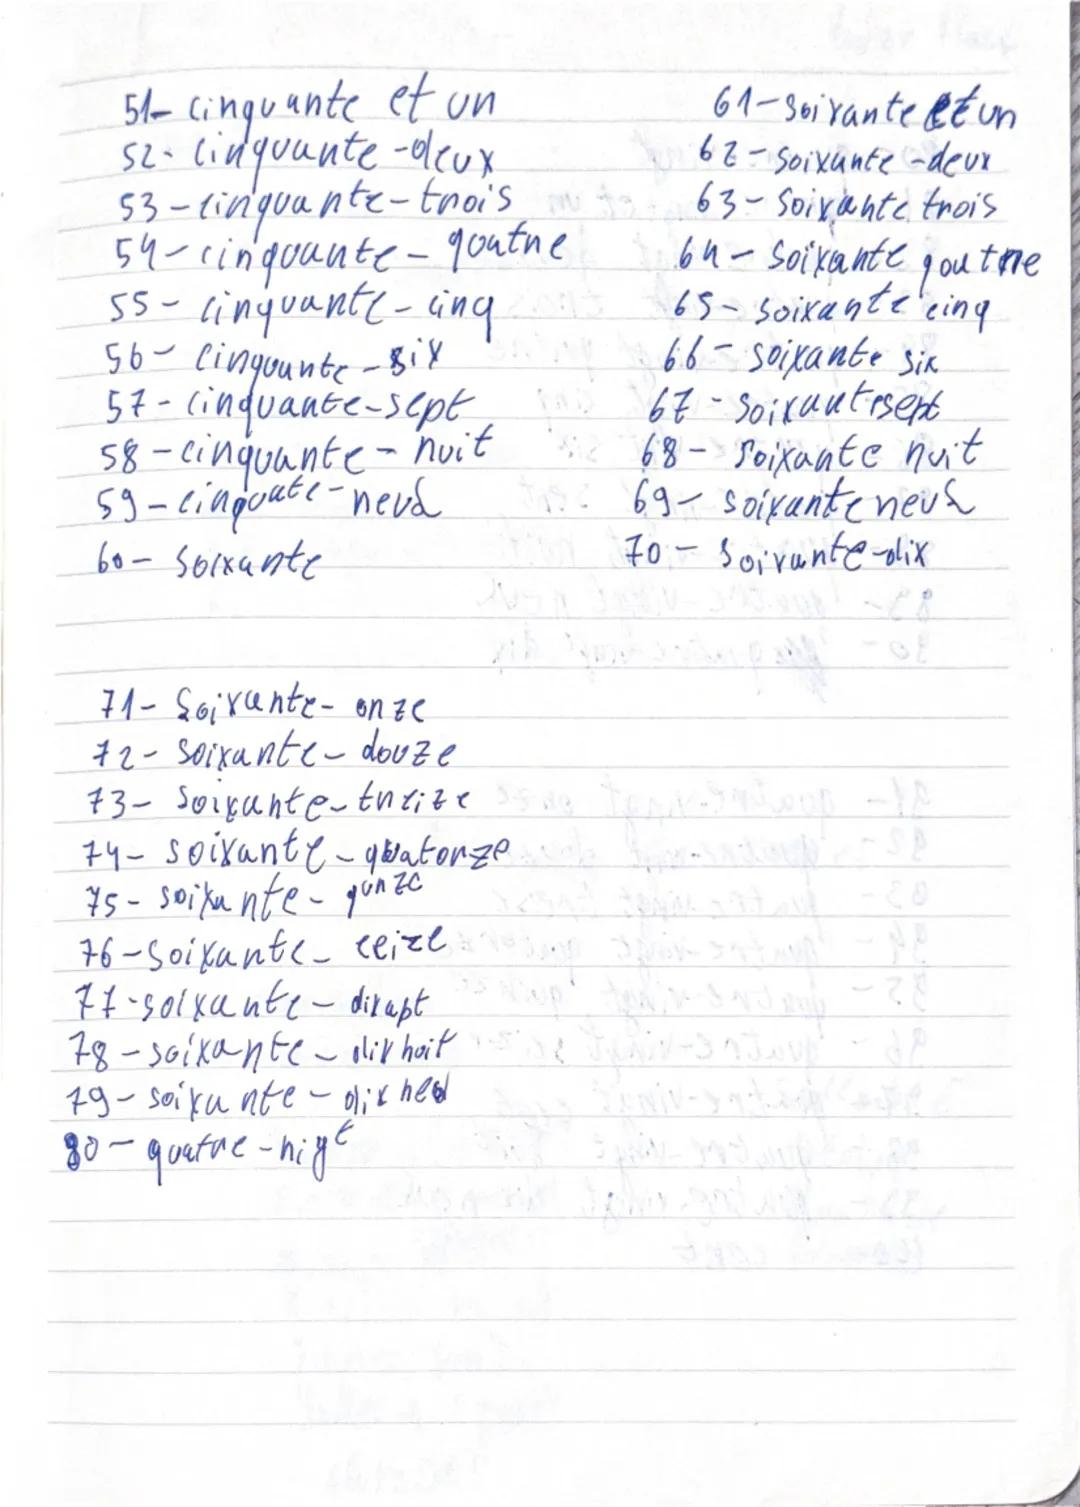 51- cinquante et un
52- cinquante-deux
53- cinquante-trois
54- cinquante- quatne
55- cinquante-cinq
56- cinquante-six
57- cinquante-sept
58- cinquante- nuit
59- cinquate-neuf
60- Soixante
61- soixante et un
62- soixante-deux
63- soixante trois
64- soixante quatne
65- soixante cinq
66- soixante six
67- soixantesept
68- soixante nuit
69- soixante neuf
70- soixante-dix
71- Soixante- onze
72- soixante- douze
73- soixante-treize
74- soixante-quatorze
75- soixante- qunze
76- soixante- ceize
77- soixante- dixapt
78- soixante- dix hoit
79- soixante- dix neu
80- quatne-nigt